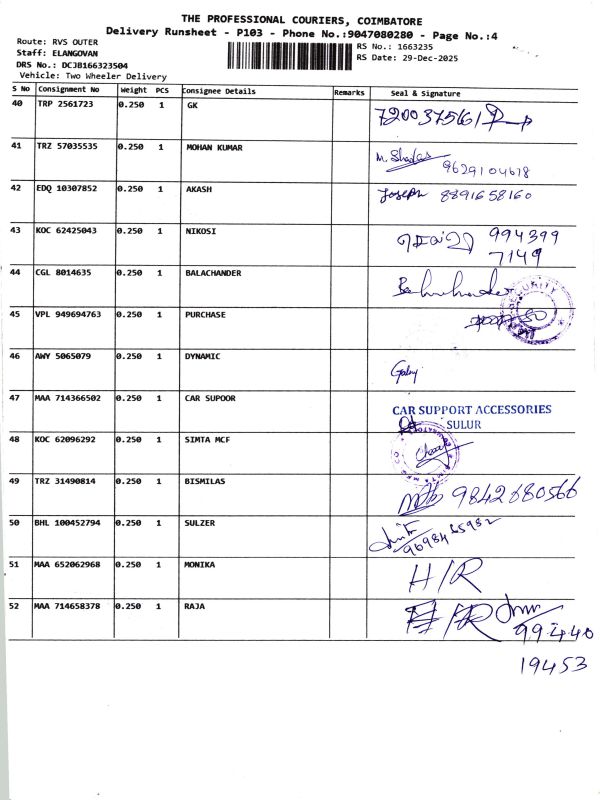 THE PROFESSIONAL COURIERS, COIMBATORE
Delivery Runsheet - P103 - Phone No.:9047080280 - Page No.:4
Route: RVS OUTER
Staff: ELANGOVAN
DRS No.: DCJB166323504
Vehicle: Two Wheeler Delivery
RS No.: 1663235
RS Date: 29-Dec-2025
S No Consignment No Weight PCS Consignee Details Remarks Seal & Signature
40 TRP 2561723 0.250 1 GK 7200375161
41 TRZ 57035535 0.250 1 MOHAN KUMAR 9629104618
42 EDQ 10307852 0.250 1 AKASH Joseph 8891658160
43 KOC 62425043 0.250 1 NIKOSI 994399
7149
44 CGL 8014635 0.250 1 BALACHANDER
45 VPL 949694763 0.250 1 PURCHASE SECURITY
46 AWY 5065079 0.250 1 DYNAMIC
47 MAA 714366502 0.250 1 CAR SUPOOR CAR SUPPORT ACCESSORIES
SULUR
48 KOC 62096292 0.250 1 SIMTA MCF
49 TRZ 31490814 0.250 1 BISMILAS 9842680566
50 BHL 100452794 0.250 1 SULZER
51 MAA 652062968 0.250 1 MONIKA H/R
52 MAA 714658378 0.250 1 RAJA 99440
19453